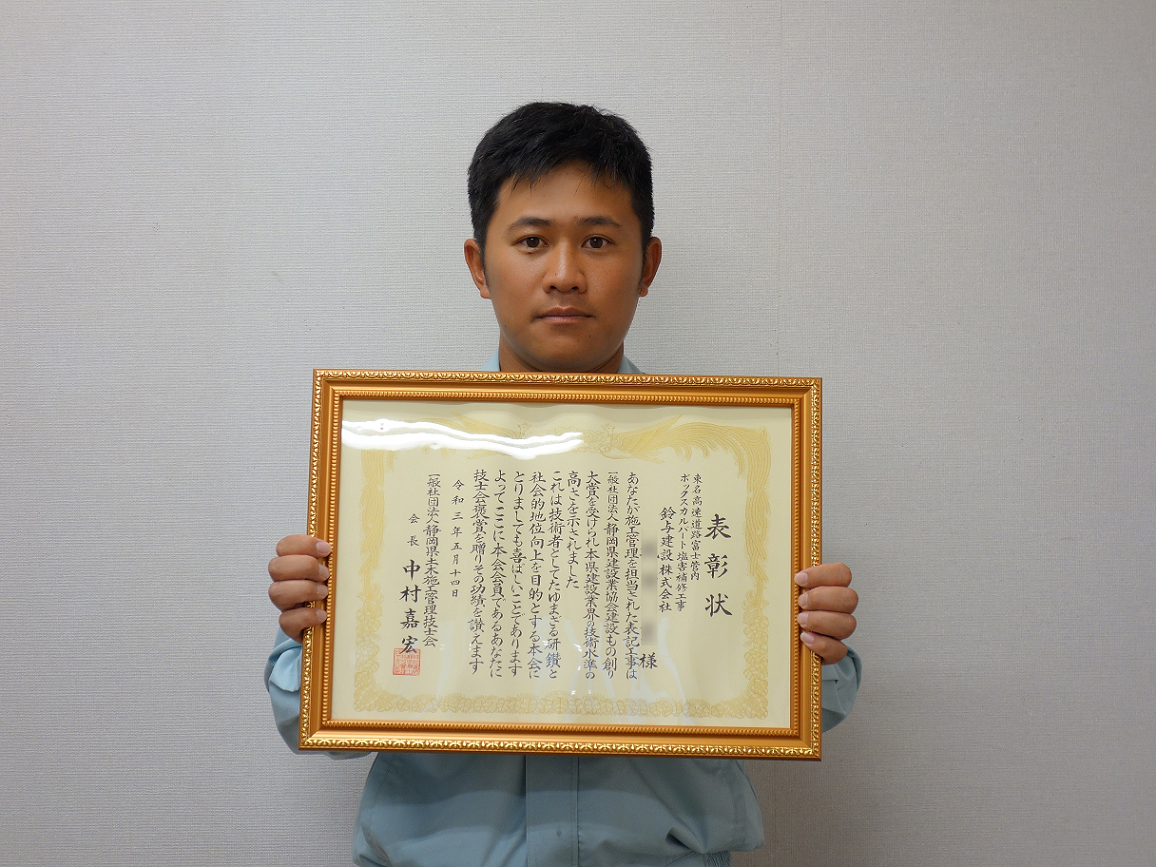 表彰状
東名高速道路富士管内
ボックスカルバート塩害補修工事
鈴与建設株式会社
様
あなたが施工管理を担当された表記工事は
一般社団法人静岡県建設業協会建設もの創り
大賞を受けられ本県建設業界の技術水準の
高さを示されました
これは技術者としてたゆまざる研鑚と
社会的地位向上を目的とする本会に
とりましても喜ばしいことであります
よってここに本会会員であるあなたに
技士会褒賞を贈りその功績を讃えます
令和三年五月十四日
一般社団法人静岡県土木施工管理技士会
会長 中村嘉宏